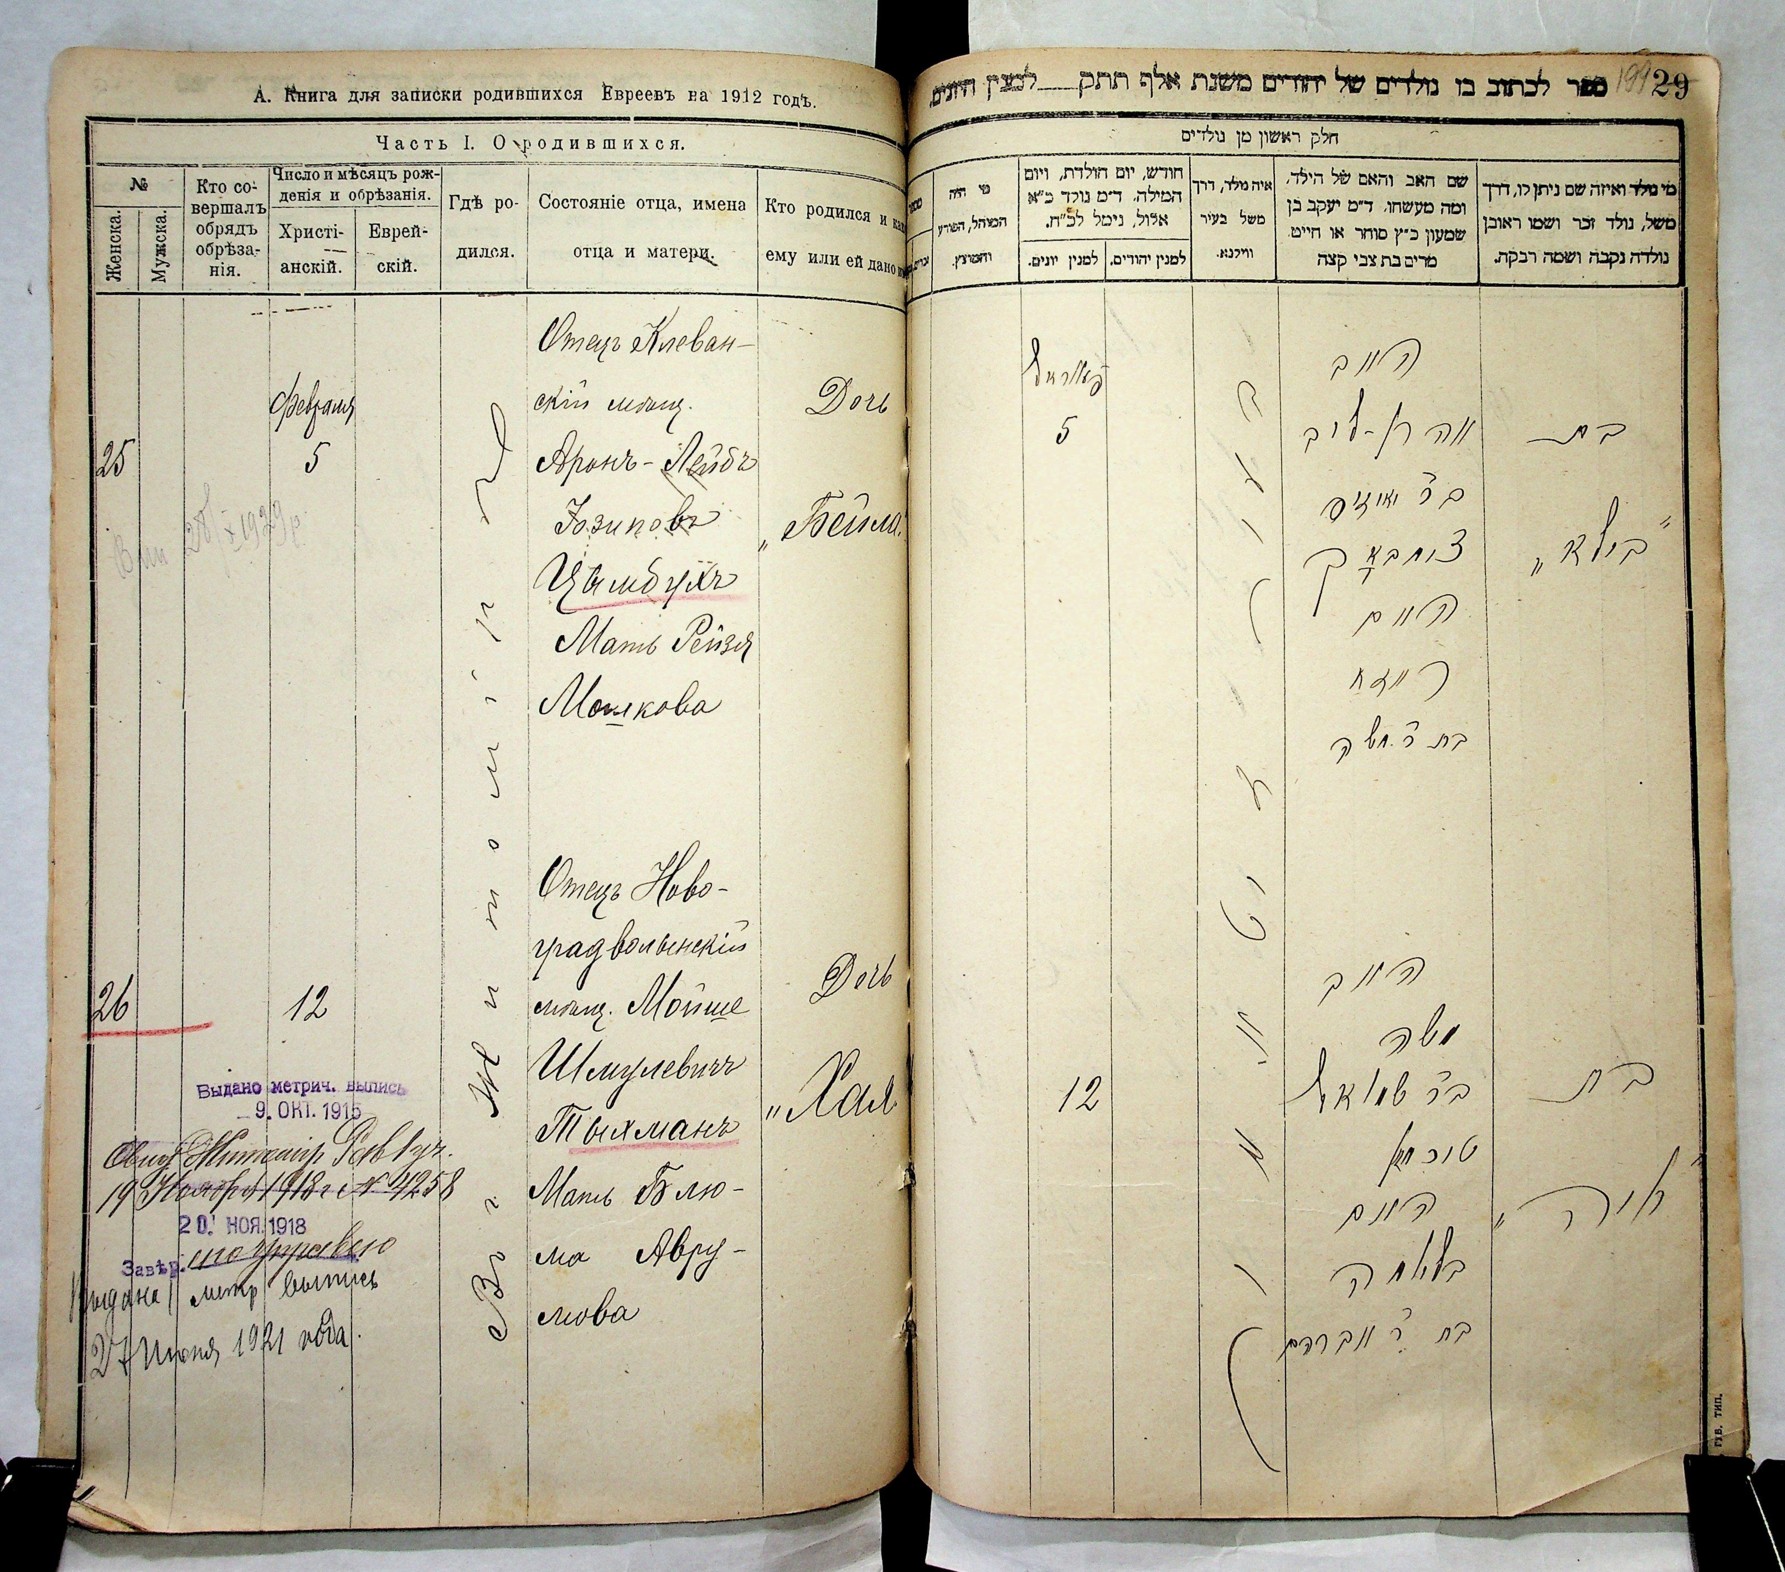 А. Книга для записки родившихся Евреевъ на 1912 годъ.
Часть I. О родившихся.
№
Женска.
Мужска.
Кто со-
вершалъ
обрядъ
обрѣза-
нія.
Число и мѣсяцъ рож-
денія и обрѣзанія.
Христі-
анскій.
Еврей-
скій.
Гдѣ ро-
дился.
Состояніе отца, имена
отца и матери.
Кто родился и как
ему или ей дано
25
Февраля
5
Въ г. Житомірѣ
Отецъ Клеван-
скій мѣщ.
Аронъ-Лейбъ
Цымбухъ
Мать Рейзя
Мошкова
Дочь
„Бейла"
1929 г.
26
12
Отецъ Ново-
градволынскій
мѣщ. Мойше
Шмулевичъ
Тыхманъ
Мать Блю-
ма Авру-
мова
Дочь
„Хая
Выдано метрич. выпись
9. ОКТ. 1915
19 Ноября 1918 г. № 4258
20 НОЯ. 1918
Завѣр.
Выдана метр выпись
27 Июня 1921 года.
ספר לכתוב בו נולדים של יהודים משנת אלף תתק למנין היונים
199
29
חלק ראשון מן נולדים
מי נולד ואיזה שם ניתן לו, דרך
משל, נולד זכר ושמו ראובן
נולדה נקבה ושמה רבקה.
שם האב והאם של הילד,
ומה מעשהו. ד״מ יעקב בן
שמעון כ״ץ סוחר או חייט
מרים בת צבי קצה
איה נולד, דרך
משל בעיר
ווילנא.
חודש, יום הולדת, ויום
המילה. ד״מ נולד כ״א
אלול, נימל לכ״ח.
למנין יהודים.
למנין יונים.
מי היה
המוהל, הפורע
והמוצץ.
פעווראל
5
האב
אהרן-ליב
האם
רייזא
בת ר' משה
בת
„ביילא"
12
האב
משה
בר שמואל
האם
בלומה
בת ר' אברהם
בת
„חיה"